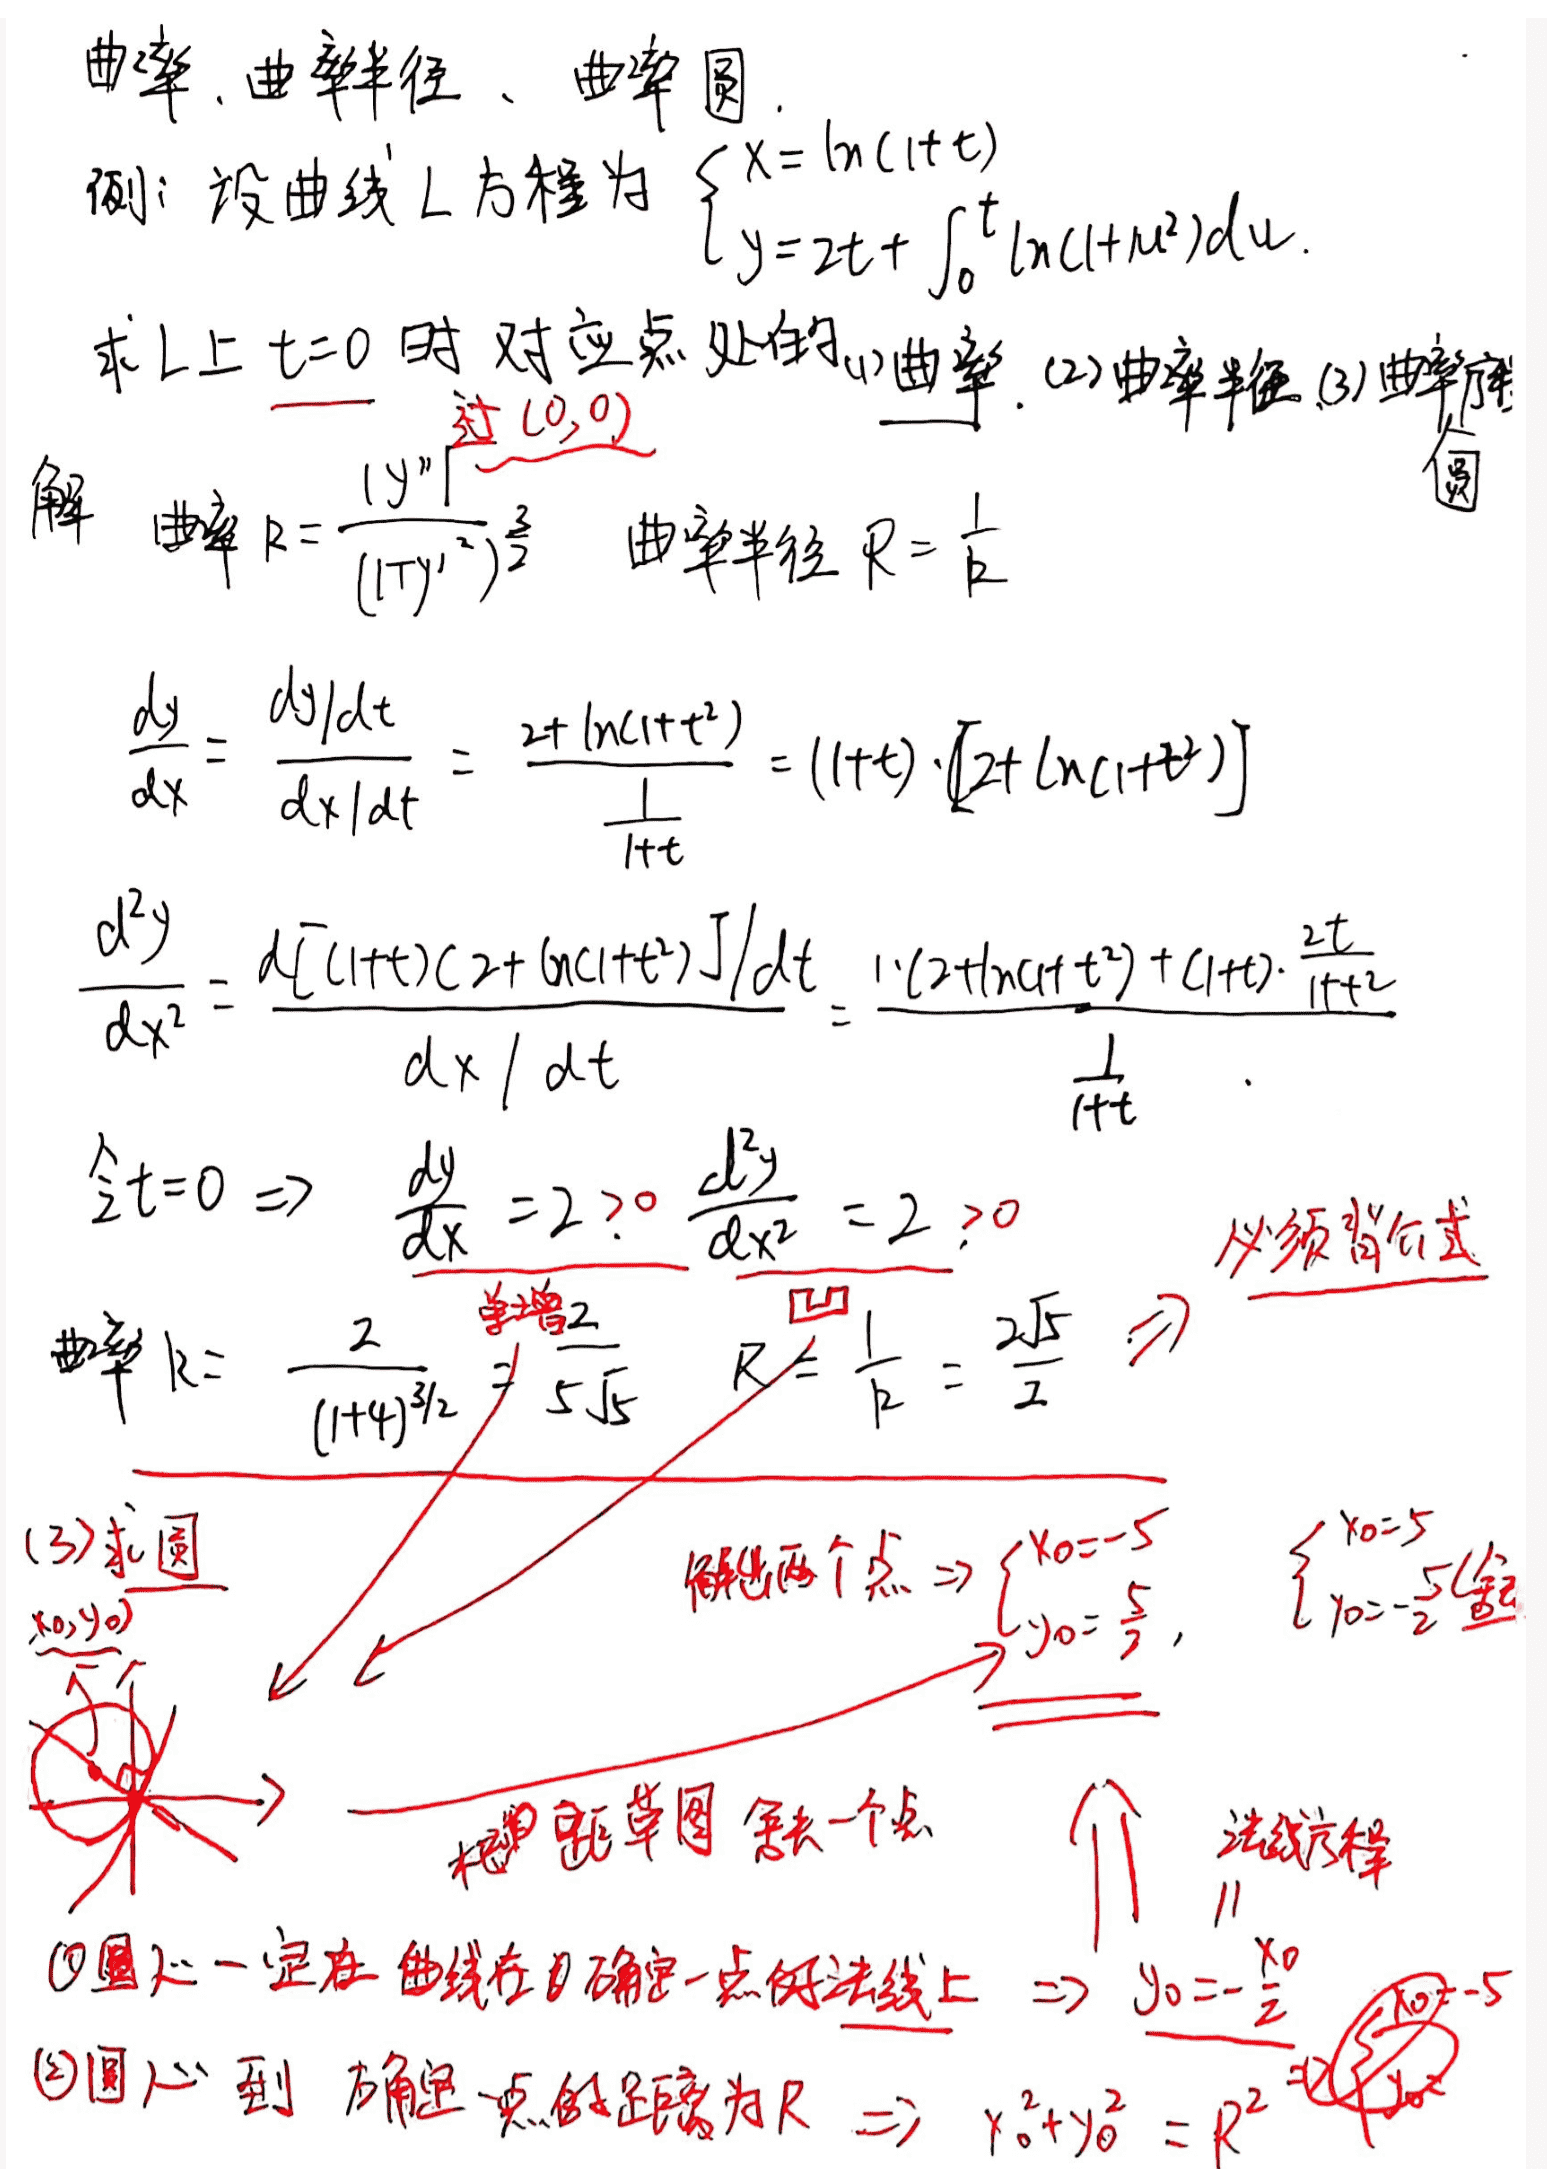 曲率、曲率半径、曲率圆.
例: 设曲线L方程为 { x=ln(1+t)
y=2t+∫₀ᵗ ln(1+u²)du.
求L上 t=0 时 对应点处的 (1)曲率. (2)曲率半径 (3)曲率
圆
过(0,0)
解 曲率k= |y''| / (1+y'²)^(3/2) 曲率半径 R= 1/k
dy/dx = (dy/dt)/(dx/dt) = (2+ln(1+t²)) / (1/(1+t)) = (1+t)·[2+ln(1+t²)]
d²y/dx² = d[(1+t)(2+ln(1+t²)]/dt / dx/dt = (1·(2+ln(1+t²)+(1+t)·2t/(1+t²)) / (1/(1+t)) .
令t=0 ⇒ dy/dx =2 >0 d²y/dx² =2 >0
必须背公式
单增 凹
曲率k= 2/(1+4)^(3/2) = 2/(5√5) R= 1/k = 2√5/2 ⇒
(3)求圆 解出两个点 ⇒ { x₀=-5 y₀=5/2, { x₀=5 y₀=-5/2(舍去
x₀,y₀)
草图 舍去一个点
法线方程
①圆心一定在 曲线在 确定一点的法线上 ⇒ y₀=-x₀/2
x₀=-5
y₀=
②圆心 到 确定一点的距离为R ⇒ x₀²+y₀²=R² ⇒